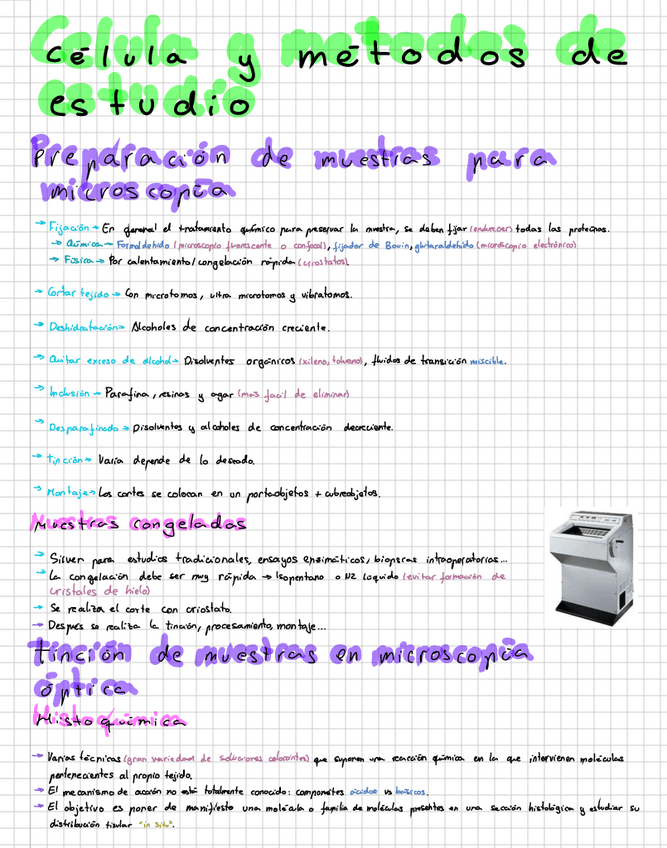 Célula y métodos de
estudio
Preparación de muestras para
microscopía
→ Fijación → En general el tratamiento químico para preservar la muestra, se deben fijar (endurecer) todas las proteínas.
→ Química → Formaldehído (microscopio fluorescente o confocal), fijador de Bouin, glutaraldehído (microscopio electrónico)
→ Física → Por calentamiento/congelación rápida (criostatos).
→ Cortar tejido → Con microtomos, ultra microtomos y vibratomos.
→ Deshidratación → Alcoholes de concentración creciente.
→ Quitar exceso de alcohol → Disolventes orgánicos (xileno, tolueno), fluidos de transición miscible.
→ Inclusión → Parafina, resinas y agar (mas facil de eliminar)
→ Desparafinado → Disolventes y alcoholes de concentración decreciente.
→ Tinción → Varia depende de lo deseado.
→ Montaje → Los cortes se colocan en un portaobjetos + cubreobjetos.
Muestras congeladas
→ Sirven para estudios tradicionales, ensayos enzimáticos, biopsias intraoperatorias...
→ La congelación debe ser muy rápida → Isopentano o N2 líquido (evitar formación de
cristales de hielo)
→ Se realiza el corte con criostato.
→ Después se realiza la tinción, procesamiento, montaje...
Tinción de muestras en microscopía
óptica
Histoquímica
→ Varias técnicas (gran variedad de soluciones colorantes) que suponen una reacción química en la que intervienen moléculas
pertenecientes al propio tejido.
→ El mecanismo de acción no está totalmente conocido: componentes ácidos vs básicos.
→ El objetivo es poner de manifiesto una molécula o familia de moléculas presentes en una sección histológica y estudiar su
distribución tisular "in situ".